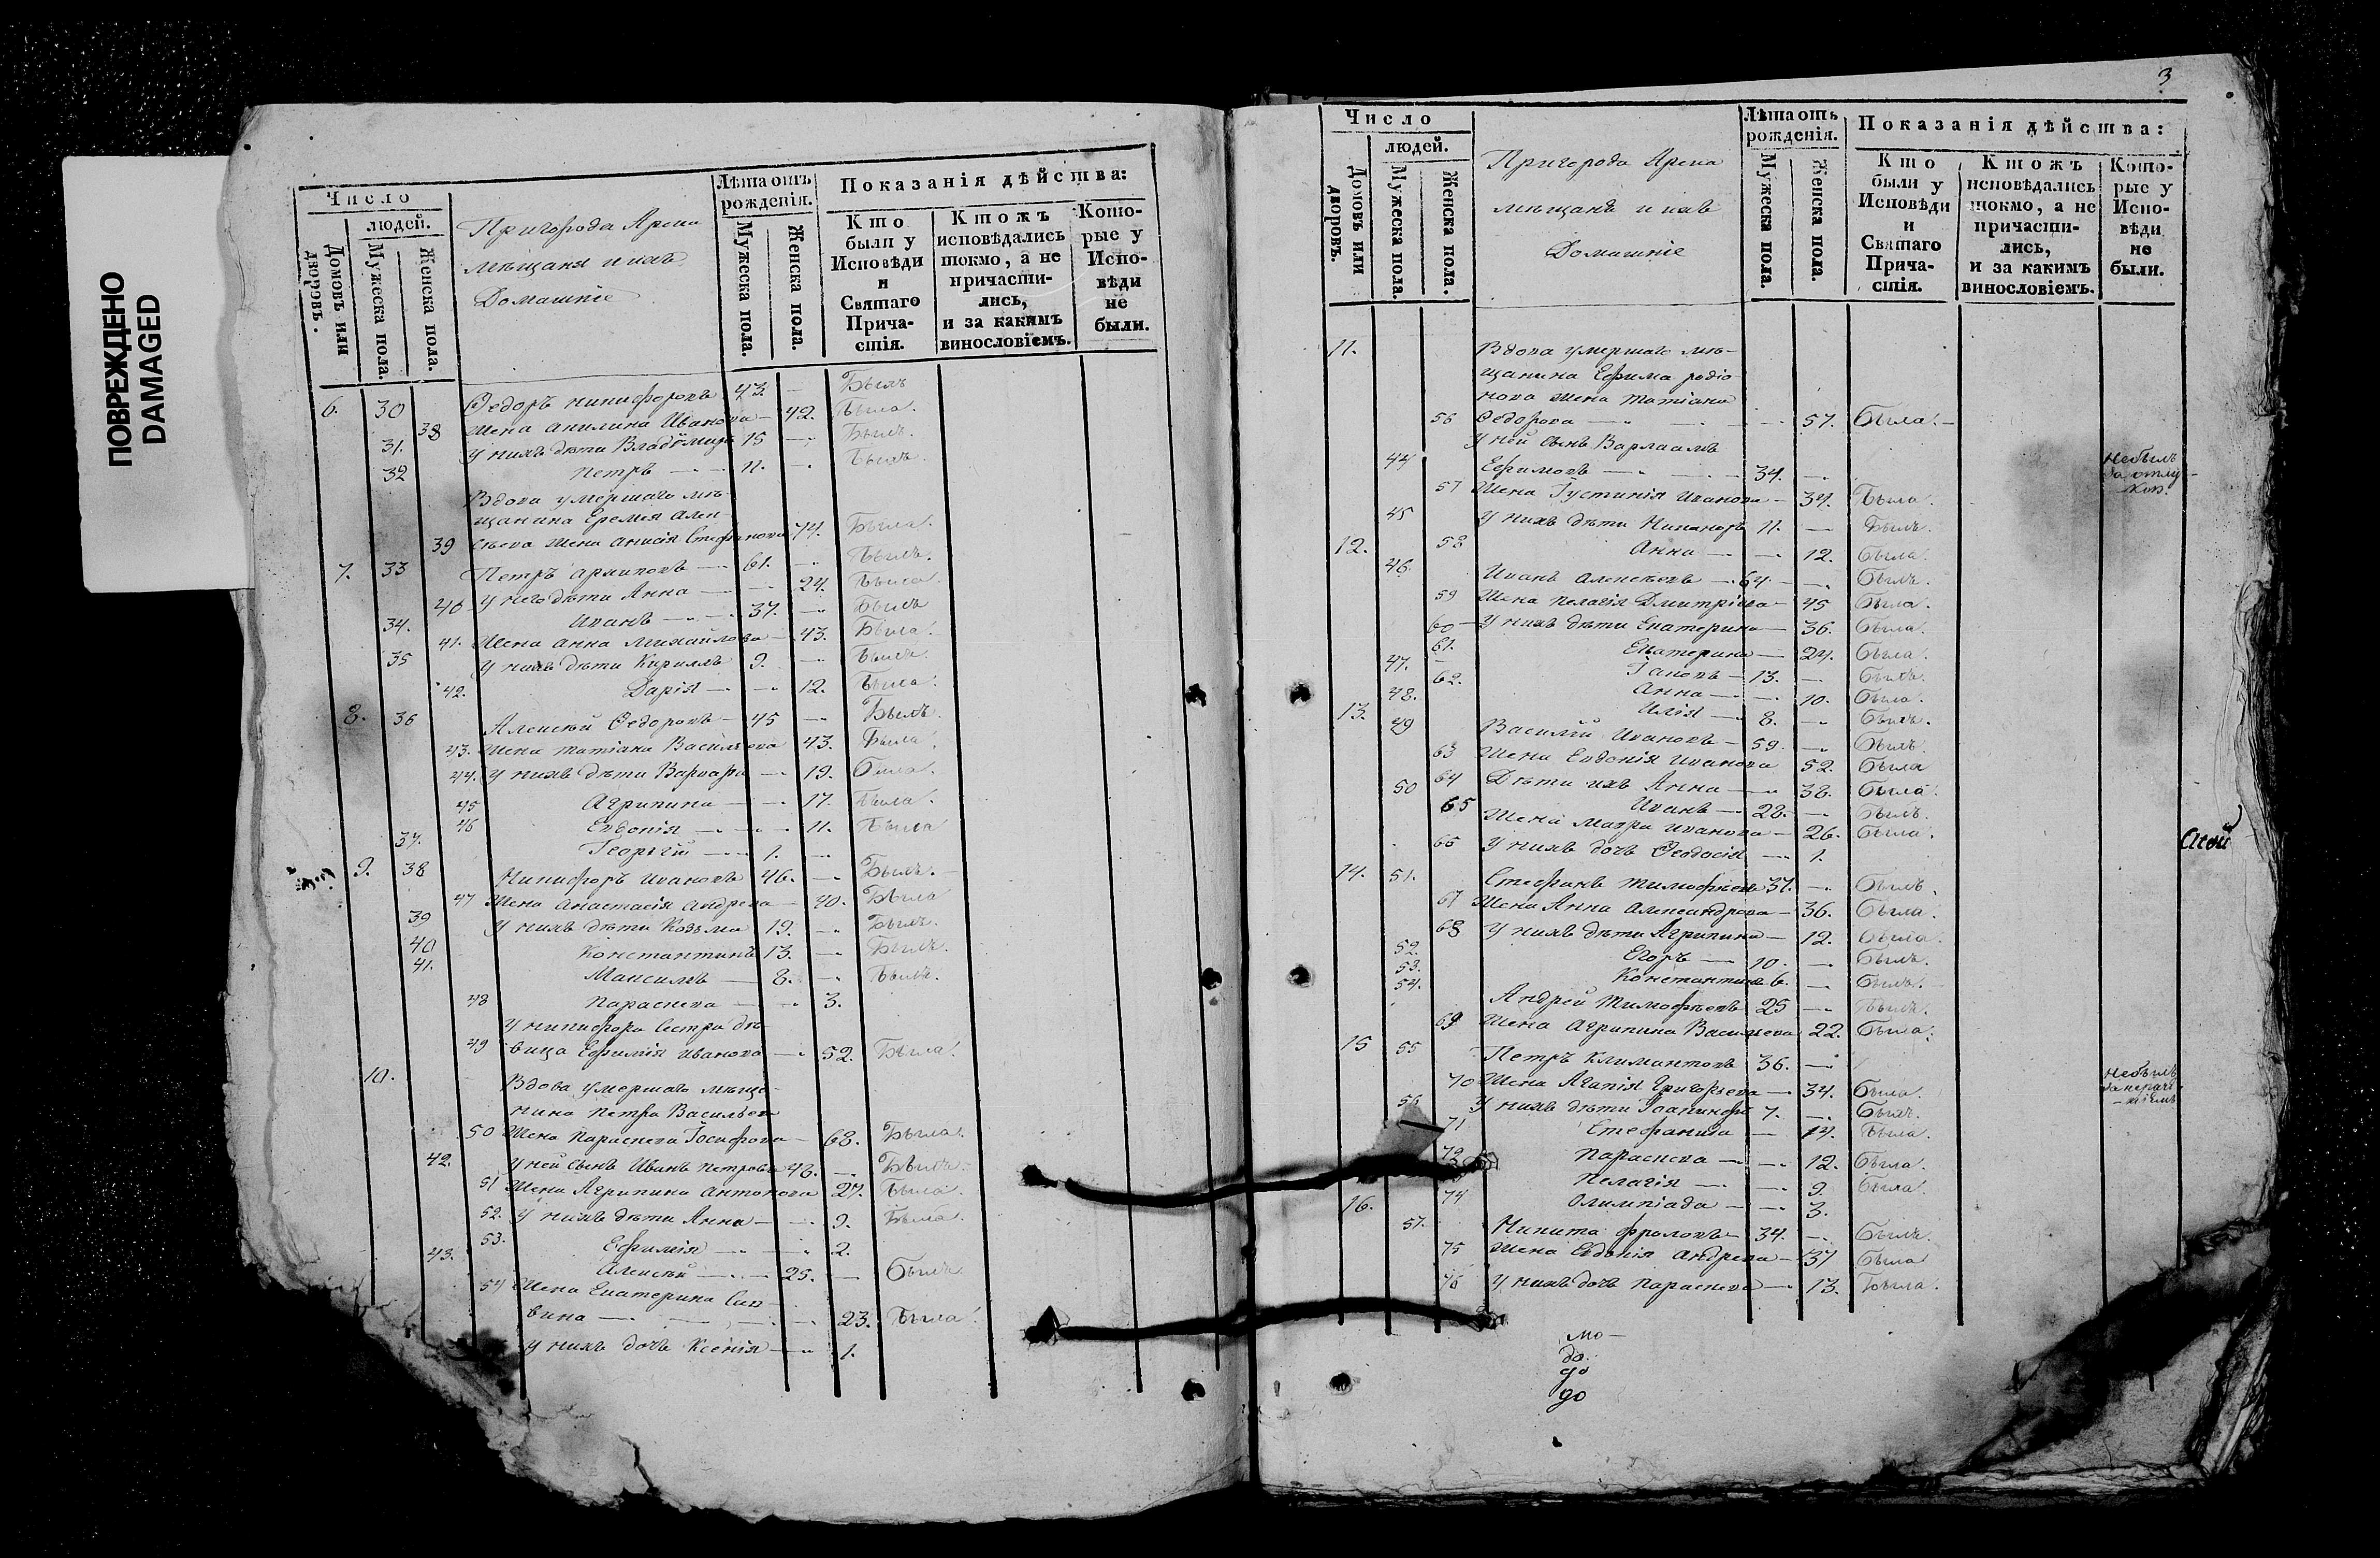 ПОВРЕЖДЕНО
DAMAGED
Число
людей.
Домовъ или дворовъ.
Мужеска пола.
Женска пола.
Пригорода Арска
мѣщаня и ихъ
Домашніе
Лѣта отъ рожденія.
Мужеска пола.
Женска пола.
Показанія дѣйства:
Кто были у Исповѣди и Святаго Причастія.
Ктожъ исповѣдались токмо, а не причастились, и за какимъ винословіемъ.
Которые у Исповѣди не были.
6. 30 Ѳедоръ Никифоровъ 43. — Былъ
38 Жена Акилина Иванова — 42. Была.
31. У нихъ дѣти Владимиръ 15 — Былъ.
32 Петръ — 11. — Былъ.
Вдова умершаго мѣ-
щанина Еремея Алек-
39 сѣева жена Анисія Стефанова 74. Была.
7. 33 Петръ Архиповъ — 61. — Былъ.
40 У него дѣти Анна — 24. Была.
34. Иванъ — 37. — Былъ
41. Жена Анна Михайлова — 43. Была.
35 У нихъ дѣти Кириллъ 9. — Былъ.
42. Дарія — 12. Была.
8. 36 Алексѣй Ѳедоровъ — 45 — Былъ.
43. Жена Татіана Васильева 43. Была.
44. У нихъ дѣти Варвара — 19. Была.
45 Агрипина — 17. Была.
46 Евдокія — 11. Была
37. Георгій — 1. —
9. 38 Никифоръ Ивановъ 46. — Былъ.
47 Жена Анастасія Андреева — 40. Была
39 У нихъ дѣти Козьма 19. — Былъ.
40 Константинъ 13. — Былъ.
41. Максимъ — 8. — Былъ.
48 Параскева — 3.
У Никифора сестра дѣ-
49 вица Ефимія Иванова — 52. Была.
10. Вдова умершаго мѣща-
нина Петра Васильева
50 Жена Параскева Іосифова — 68. Была.
42. У ней сынъ Иванъ Петровъ 48. — Былъ.
51 Жена Агрипина Антонова 27. Была.
52. У нихъ дѣти Анна — 9. Была.
53. Ефимія — 2.
43. Алексѣй — 25. — Былъ
54 Жена Екатерина Сав-
вина — 23. Была.
У нихъ дочь Ксенія — 1.
3
Число
людей.
Домовъ или дворовъ.
Мужеска пола.
Женска пола.
Пригорода Арска
мѣщанъ и ихъ
Домашніе
Лѣта отъ рожденія.
Мужеска пола.
Женска пола.
Показанія дѣйства:
Кто были у Исповѣди и Святаго Причастія.
Ктожъ исповѣдались токмо, а не причастились, и за какимъ винословіемъ.
Которые у Исповѣди не были.
11. Вдова умершаго мѣ-
щанина Ефима Родіо-
нова жена Татіана
56 Ѳедорова — 57. Была. —
У ней сынъ Варлаамъ
44 Ефимовъ — 34. — Небылъ за отлуч-
57 Жена Іустинія Иванова — 34. Была.
45 У нихъ дѣти Никаноръ 11. — Былъ.
58 Анна — 12. Была.
12. 46. Иванъ Алексѣевъ — 64. — Былъ.
59 Жена Пелагія Дмитріева — 45 Была.
60 У нихъ дѣти Екатерина — 36. Была.
61. Екатерина — 24. Была.
47. Іаковъ — 13. — Былъ.
62. Анна — 10. Была.
48. Илія — 8. — Былъ.
13. 49 Василій Ивановъ — 59. — Былъ.
63 Жена Евдокія Иванова 52. Была
64 Дѣти ихъ Анна — 38. Была.
50 Иванъ — 28. — Былъ.
65 Жена Мавра Иванова — 26. Была.
66 У нихъ дочь Ѳеодосія — 1.
14. 51. Стефанъ Тимофѣевъ 37. — Былъ.
67 Жена Анна Александрова — 36. Была.
68 У нихъ дѣти Агрипина — 12. Была.
52. Егоръ — 10. — Былъ.
53. Константинъ 6. — Былъ.
54. Андрей Тимофѣевъ 25 — Былъ.
69 Жена Агрипина Васильева 22. Была.
15 55 Петръ Климантовъ 36. — Небылъ
70 Жена Агапія Григорьева — 34. Была.
56. У нихъ дѣти Іоанникій 7. — Былъ.
71 Стефанида — 14. Была.
72 Параскева — 12. Была.
Пелагія — 9. Была.
74 Олимпіада — 3.
16. 57. Никита Фроловъ — 34. — Былъ.
75 Жена Евдокія Андреева — 37 Была
76 У нихъ дочь Параскева — 13. Была.